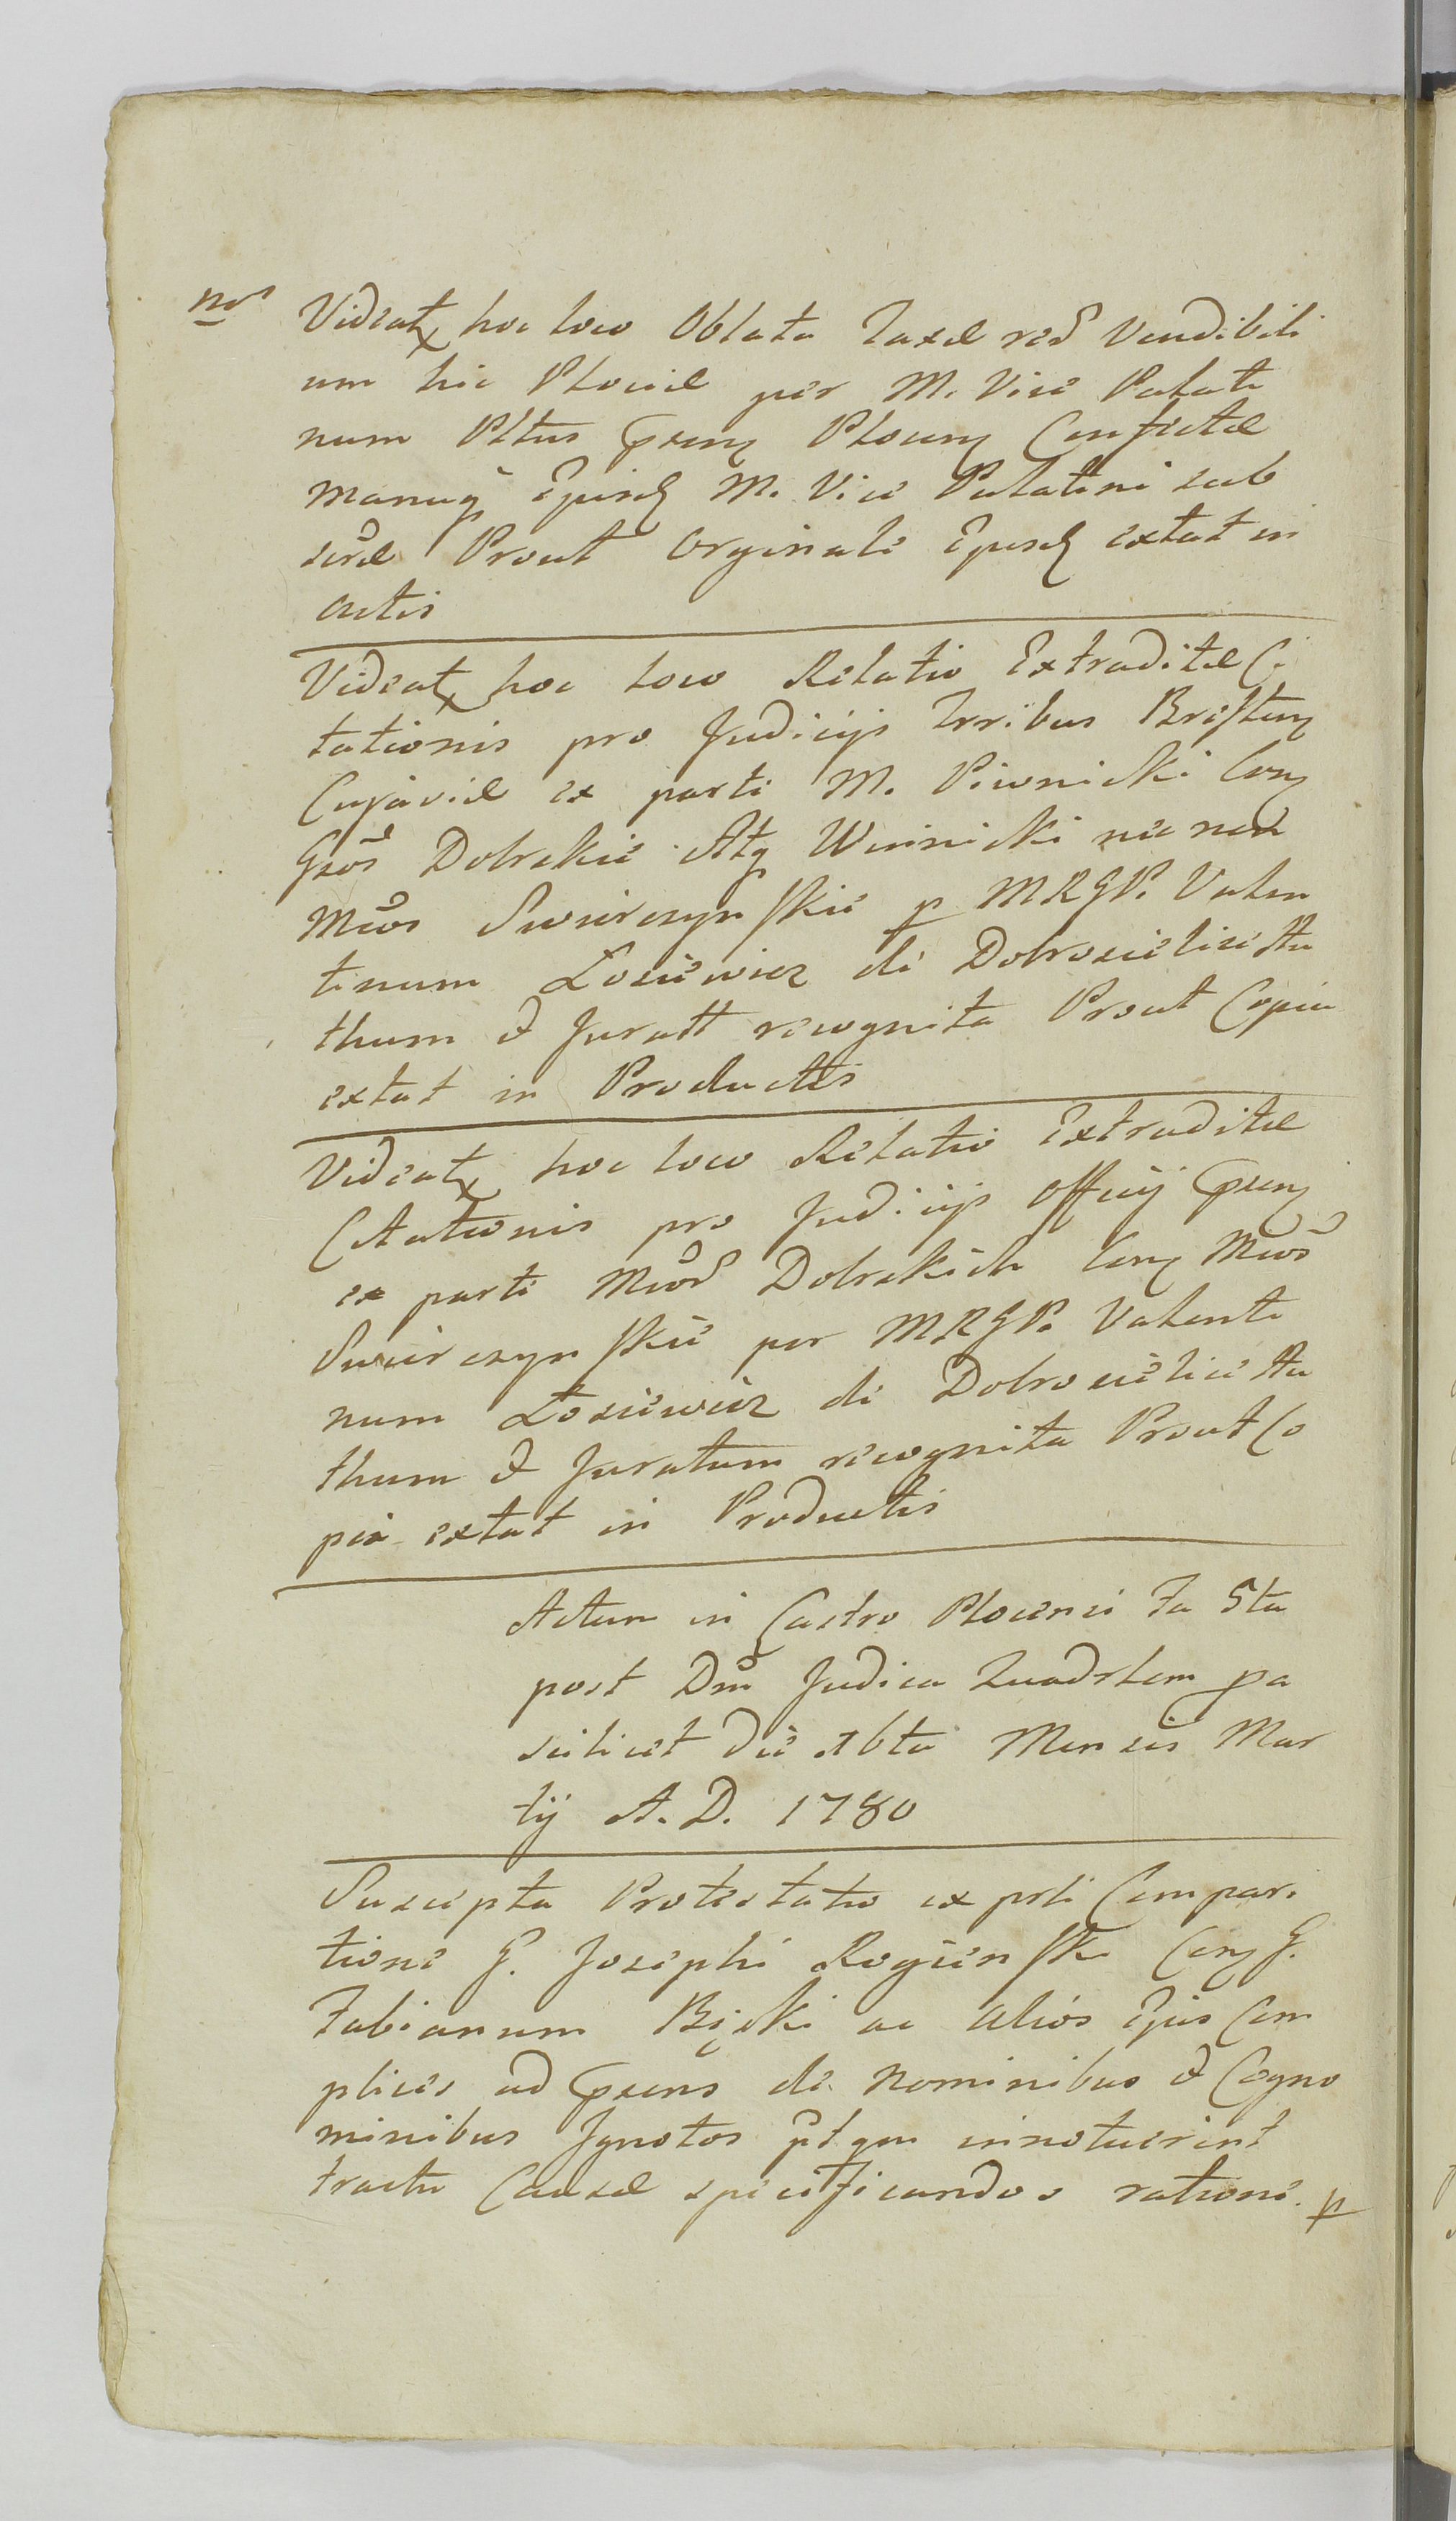 Videatx hoc loco Oblata Taxæ red Vendibili
um hic Plociæ per M. Vice Palati
num Pltus Gsem Plocen Confectæ
manuq Ejusd M. Vice Palatini sub
scræ Prout Orginale Ejusd extat in
Actis
Videatx hoc loco Relatio Extraditæ Ci
tationis pro Judicijs Trribus Bresten
Cujaviæ ex parte M. Piwnicki Con
Gsos Dobrskie Atq Winnicki nec non
Mcos Swierczynskie p MRGP. Valen
tinum Łosiewicz de Dobrosielice Au
thum & Juratt recognita Prout Copia
extat in Productis
Videatx hoc loco Relatio Extraditæ
Citationis pro Judicijs Officij
ex parte Mcor Dobrskich Con Mcos
Swierczynskie per MRGP. Valenti
num Łosiewicz de Dobrosielice Au
thum & Juratum recognita Prout Co
pia extat in Productis
Actum in Castro Plocensi Fa 5ta
post Dm Judica Quadrlem pa
scilicet die 16ta Mensis Mar
tij A. D. 1780
Suscepta Protestatio ex prte Compari
tione G. Josephi Rogienski Con G.
Fabianum Bęcki ac Alios Ejus Com
plices ad Gsens de Nominibus & Cogno
minibus Ignotos innotuerint
tractu Causæ specificandos ratione p